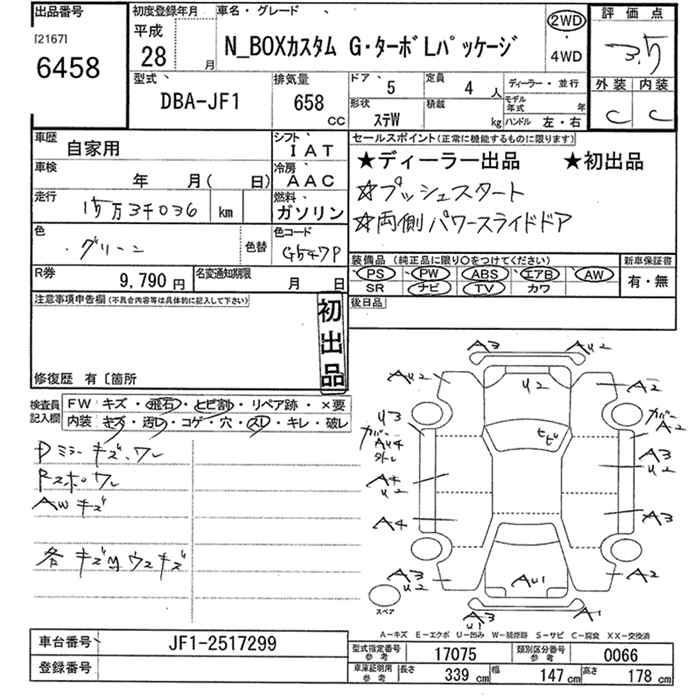 出品番号
[2167]
6458
初度登録年月
平成
28 月
車名・グレード
N_BOXカスタム G・ターボLパッケージ
2WD
・
4WD
評価点
3.5
外装 内装
C C
型式
DBA-JF1
排気量
658
CC
ドア
5
定員
4 人
形状
ステW
積載
kg
ディーラー・並行
モデル年式 年
ハンドル 左・右
車歴
自家用
シフト
IAT
車検
年 月( 日)
冷房
AAC
走行
15万3千036 km
燃料
ガソリン
色
グリーン
色替
色コード
G547P
R券
9,790 円
名変通知期限
月 日
セールスポイント(正常に機能するものに限ります)
★ディーラー出品 ★初出品
☆プッシュスタート
☆両側パワースライドドア
装備品 (純正品に限り○をつけてください)
PS PW ABS エアB AW
SR ナビ TV カワ
新車保証書
有・無
後日品
注意事項申告欄(不具合内容等は具体的に記入して下さい)
初出品
修復歴 有〔箇所
検査員記入欄
FW キズ・飛石・ヒビ割・リペア跡・×要
内装・キズ・汚レ・コゲ・穴・スレ・キレ・破レ
Dミラーキズ、ワレ
Rスポワレ
AWキズ
各キズMウスキズ
A3
AU2
AU2
U2
A2
U3
カバー
AU4
外レ
ヒビ
カバー
A2
A4
U2
A3
U2
A4
A3
A3
U2
AU1
A2
スペア
A3
U1
A1
A－キズ E－エクボ U－凹み W－補修跡 S－サビ C－腐食 XX－交換済
車台番号
JF1-2517299
登録番号
型式指定番号
参考
17075
類別区分番号
参考
0066
車庫証明用
参考
長さ
339 cm
幅
147 cm
高さ
178 cm